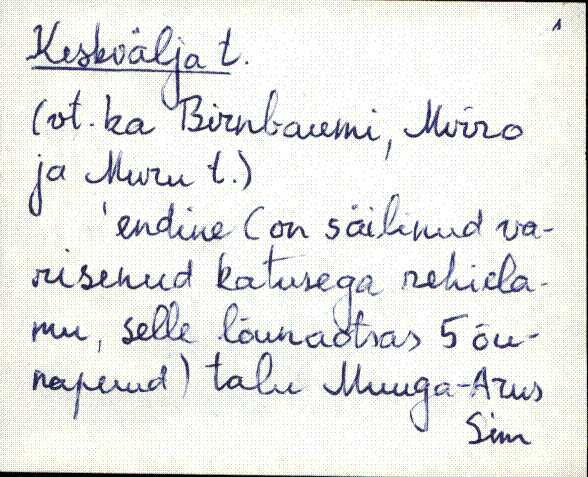 1
Keskvälja t.
(vt. ka Birnbaumi, Mürro
ja Muru t.)
'endine (on säilinud va-
risenud katusega rehiela-
mu, selle lõunaotsas 5 õu-
napuud) talu Muuga-Arus
Sim